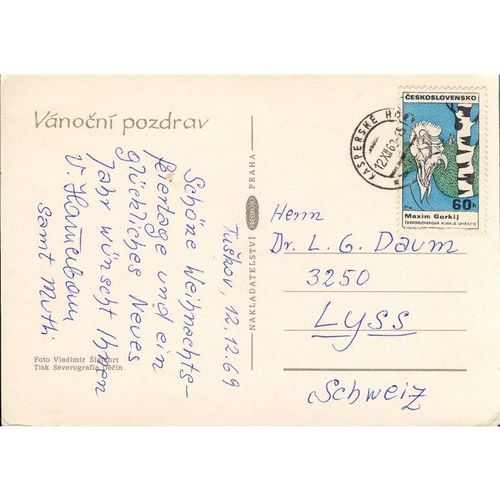 Vánoční pozdrav
Tuškov, 12.12.69
Schöne Weihnachts-
feiertage und ein
glückliches Neues
Jahr wünscht Ihnen
V.
samt Mutti
Foto Vladimír
Tisk Severografia Děčín
NAKLADATELSTVÍ PRAHA
KAŠPERSKÉ HORY
12.XII.69
ČESKOSLOVENSKO
60h
Maxim Gorkij
ČESKOSLOVENSKÁ KOMISE UNESCO
Herrn
Dr. L. G. Daum
3250
Lyss
Schweiz